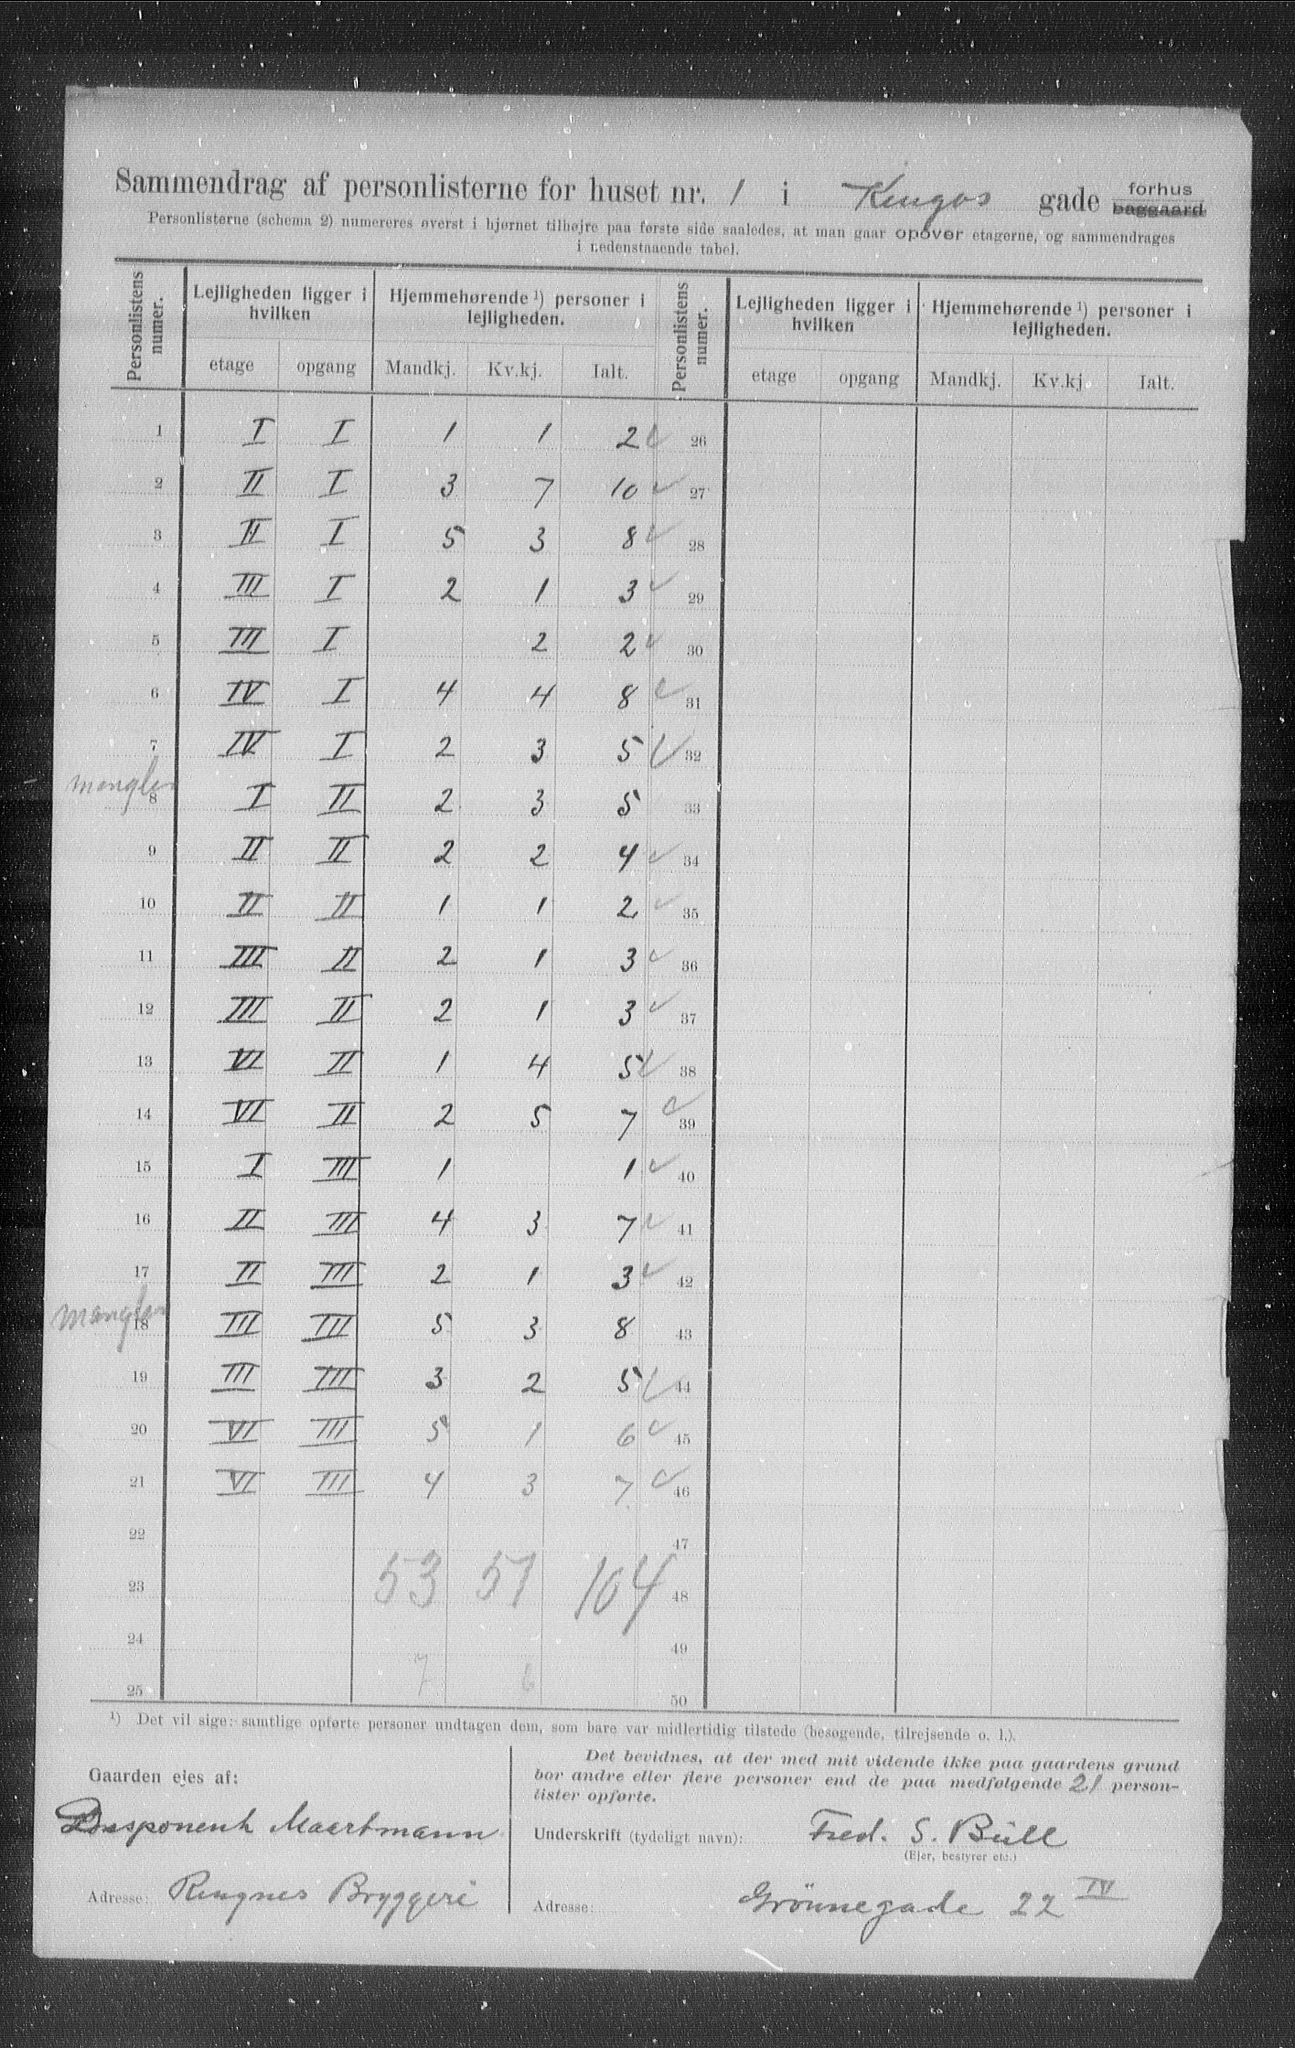 Sammendrag af personlisterne for huset nr. 1 i Kingos gade forhus ~~baggaard~~
Personlisterne (schema 2) numereres øverst i hjørnet tilhøjre paa første side saaledes, at man gaar opover etagerne, og sammendrages
i nedenstaaende tabel.
Personlistens numer. | Lejligheden ligger i hvilken | Hjemmehørende ¹) personer i lejligheden. | Personlistens numer. | Lejligheden ligger i hvilken | Hjemmehørende ¹) personer i lejligheden.
etage | opgang | Mandkj. | Kv.kj. | Ialt. | etage | opgang | Mandkj. | Kv.kj | Ialt.
1 I I 1 1 2 ✓ 26
2 II I 3 7 10 ✓ 27
3 II I 5 3 8 ✓ 28
4 III I 2 1 3 ✓ 29
5 III I 2 2 ✓ 30
6 IV I 4 4 8 ✓ 31
7 IV I 2 3 5 ✓ 32
mangler 8 I II 2 3 5 33
9 II II 2 2 4 ✓ 34
10 II II 1 1 2 ✓ 35
11 III II 2 1 3 ✓ 36
12 III II 2 1 3 ✓ 37
13 VI II 1 4 5 ✓ 38
14 VI II 2 5 7 ✓ 39
15 I III 1 1 ✓ 40
16 II III 4 3 7 ✓ 41
17 II III 2 1 3 ✓ 42
mangler 18 III III 5 3 8 43
19 III III 3 2 5 ✓ 44
20 VI III 5 1 6 ✓ 45
21 VI III 4 3 7 ✓ 46
22 47
23 53 51 104 48
24 49
25 7 6 50
¹) Det vil sige: samtlige opførte personer undtagen dem, som bare var midlertidig tilstede (besøgende, tilrejsende o. l.).
Gaarden ejes af:
Disponent Maartmann
Adresse: Ringnes Bryggeri
Det bevidnes, at der med mit vidende ikke paa gaardens grund
bor andre eller flere personer end de paa medfølgende 21 person-
lister opførte.
Underskrift (tydeligt navn): Fred. S. Bull
(Ejer, bestyrer etc.)
Adresse: Grönnegade 22 IV